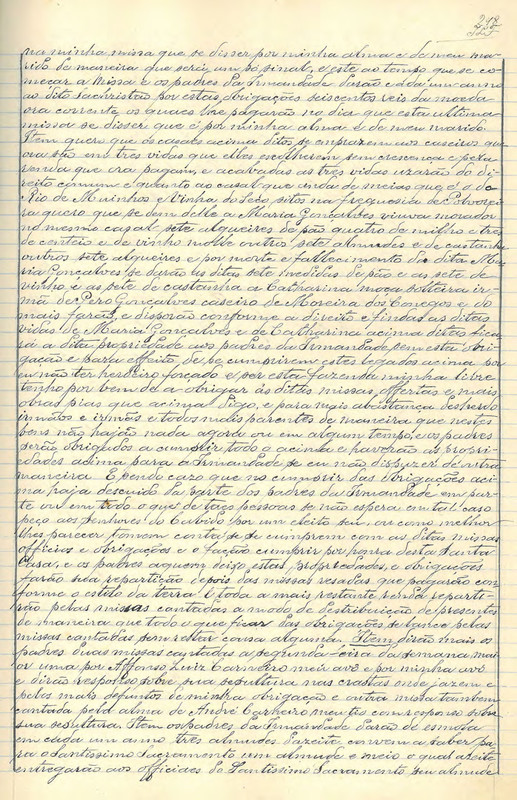 na minha missa que se disser por minha alma e de meu ma-
rido da maneira que será, um só sinal, e este ao tempo que se co-
meçar a Missa e os padres da Irmandade darão cada um anno
ao dito Sachristão por estas obrigações seiscentos reis da moeda
ora corrente, os quaes lhe pagarão no dia que esta ultima
missa se disser que é por minha alma e de meu marido.
Item quero que os casaes acima ditos se emprazem aos caseiros que
ora são em tres vidas que elles escolherem sem crescença e pela
renda que ora pagam, e acabadas as tres vidas usarão do di-
reito commum e quanto ao casal que anda de meias que é o do
Rio de Muinhos e Vinha do Sedo, sitos na freguesia de Polvorei-
ra quero que se dem delle a Maria Gonçalves viuva morador
no mesmo casal, sete alqueires de pão quatro de milho e tres
de centeio e de vinho molle outros sete almudes e de castanha
outros sete alqueires e por morte e fallecimento da dita Ma-
ria Gonçalves se darão as ditas sete medidas de pão e as sete de
vinho e as sete de castanha a Catharina moça solteira ir-
mã de Pero Gonçalves caseiro de Moreira dos Conegos e do
mais farão, e disporão conforme a direito e findas as ditas
vidas de Maria Gonçalves e de Catharina acima ditas fica-
rá a dita propriedade aos padres da Irmandade sem esta obri-
gação e para effeito de se cumprirem estes legados acima por
eu não ter herdeiro forçado e por esta fazenda minha livre
tenho por bem de a obrigar ás ditas missas, offertas e mais
obras pias que acima digo, e para mais abastança desherdo
irmãos e irmãs e todos mais parentes de maneira que nestes
bens não hajão nada agora ou em algum tempo, e os padres
serão obrigados a cumprir todo o acima e haverão as proprie-
dades acima para a Irmandade se eu não dispuzer de outra
maneira. E sendo cazo que no cumprir das obrigações aci-
ma haja descuido da parte dos padres da Irmandade em par-
te ou em todo o que de taes pessoas se não espera em tal caso
peço aos senhores do Cabido por um eleito seu, ou como melhor
lhes parecer tomem conta se se cumprem com as ditas missas
officios e obrigações e o façam cumprir por honra desta Santa
Casa, e os padres aquem deixo estas propriedades, e obrigações
farão sua repartição depois das missas resadas que pagarão con-
forme o estilo da terra. E toda a mais restante renda reparti-
rão pelas missas cantadas a modo de destribuição de presentes
de maneira que todo o que ficar das obrigações se lance pelas
missas cantadas sem restar cousa alguma. Item dirão mais os
padres duas missas cantadas a segunda-feira da semana mai-
or uma por Affonso Luiz Carneiro meu avô e por minha avó
e dirão responso sobre sua sepultura nas crastas onde jazem e
pelos mais defuntos de minha obrigação e outra missa tambem
cantada pela alma de André Carneiro meu tio com responso sobre
sua sepultura. Item os padres da Irmandade darão de esmola
em cada um anno tres almudes d'azeite convem a saber pa-
ra o Santissimo Sacramento um almude e meio o qual azeite
entregarão aos officiaes do Santissimo Sacramento seu almude